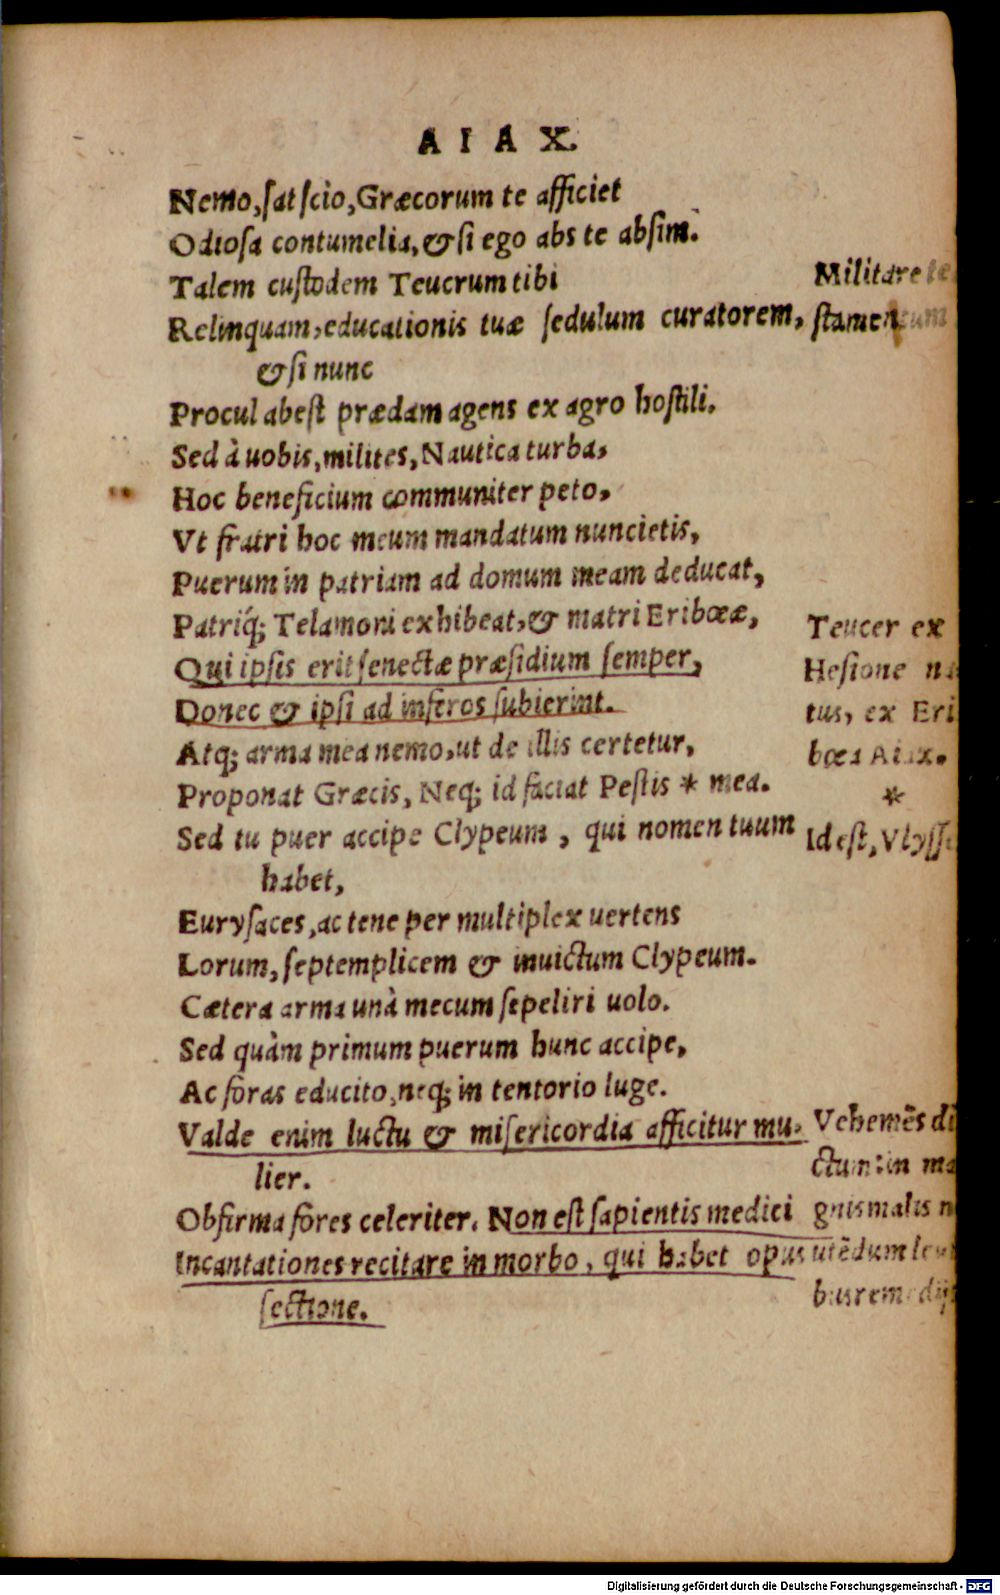 AIAX.
Nemo, ſat ſcio, Græcorum te afficiet
Odioſa contumelia, & ſi ego abs te abſim.
Talem cuſtodem Teucrum tibi
Relinquam, educationis tuæ ſedulum curatorem,
& ſi nunc
Procul abeſt prædam agens ex agro hoſtili.
Sed à uobis, milites, Nautica turba,
Hoc beneficium communiter peto,
Vt fratri hoc meum mandatum nuncietis,
Puerum in patriam ad domum meam deducat,
Patriq́; Telamoni exhibeat, & matri Eribœæ,
Qui ipſis erit ſenectæ præſidium ſemper,
Donec & ipſi ad inferos ſubierint.
Atq; arma mea nemo, ut de illis certetur,
Proponat Græcis, Neq; id faciat Peſtis * mea.
Sed tu puer accipe Clypeum, qui nomen tuum
habet,
Euryſaces, ac tene per multiplex uertens
Lorum, ſeptemplicem & inuictum Clypeum.
Cætera arma unà mecum ſepeliri uolo.
Sed quàm primum puerum hunc accipe,
Ac foras educito, neq; in tentorio luge.
Valde enim luctu & miſericordia afficitur mu-
lier.
Obfirma fores celeriter. Non eſt ſapientis medici
Incantationes recitare in morbo, qui habet opus
ſectione.
Militare te
ſtamentum
Teucer ex
Heſione na
tus, ex Eri
bœa Aiax.
*
Id eſt, Vlyſſe
Vehemẽs di
ctum: in ma
gnis malis n
utẽdum leui
bus remedijs
Digitalisierung gefördert durch die Deutsche Forschungsgemeinschaft - DFG